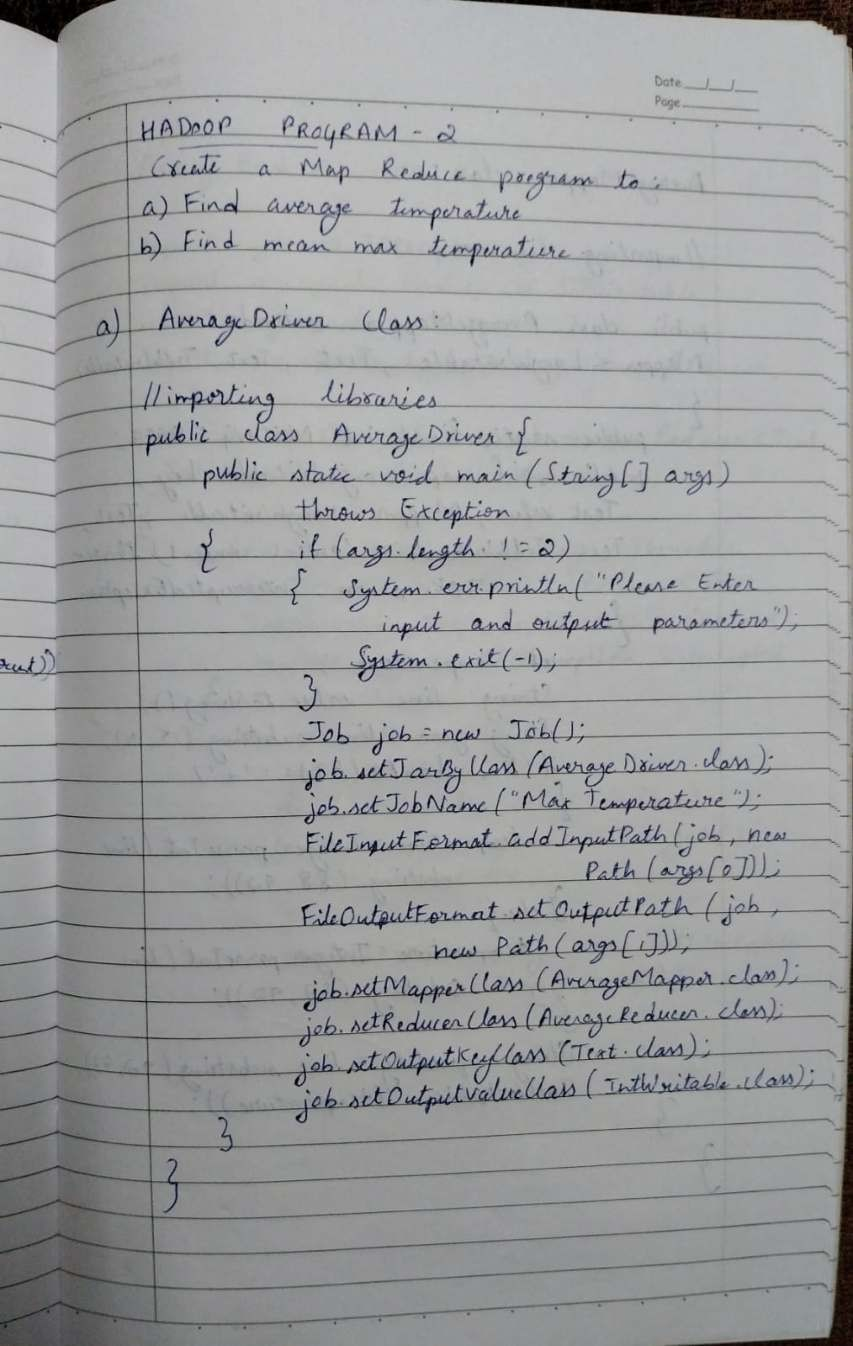 Date __/__/__
Page
HADOOP PROGRAM - 2
Create a Map Reduce program to :
a) Find average temperature
b) Find mean max temperature
a) AverageDriver Class :
//importing libraries
public class AverageDriver {
public static void main (String[] args)
throws Exception
{ if (args.length != 2)
{ System.err.println( "Please Enter
input and output parameters");
System.exit(-1);
}
Job job = new Job();
job.setJarByClass (AverageDriver.class);
job.setJobName ("Max Temperature");
FileInputFormat.addInputPath (job, new
Path (args[0]));
FileOutputFormat.setOutputPath (job,
new Path (args[1]));
job.setMapperClass (AverageMapper.class);
job.setReducerClass (AverageReducer.class);
job.setOutputKeyClass (Text.class);
job.setOutputValueClass ( IntWritable.class);
}
}